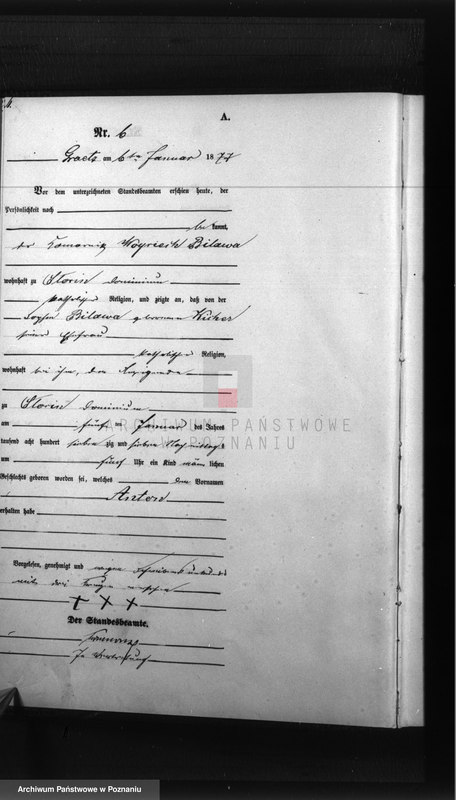 A.
Nr. 6
Graetz am 6ten Januar 1877
Vor dem unterzeichneten Standesbeamten erschien heute, der
Persönlichkeit nach
be kannt,
der Komornik Woyciech Bilawa
wohnhaft zu Dominium
katholischer Religion, und zeigte an, daß von der
Sophia Bilawa geborenen
seiner Ehefrau
katholischer Religion,
wohnhaft bei ihm, dem Anzeigenden
zu Dominium
am fünf ten Januar des Jahres
tausend acht hundert siebenzig und sieben Nachmittags
um fünf Uhr ein Kind männ lichen
Geschlechts geboren worden sei, welches den Vornamen
Anton
erhalten habe
Vorgelesen, genehmigt und wegen
mit drei Kreuzen versehen
+ + +
Der Standesbeamte.
In Vertretung
ARCHIWUM PAŃSTWOWE
W POZNANIU
Archiwum Państwowe w Poznaniu